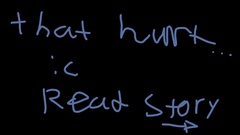 that hurt...
:c
Read story